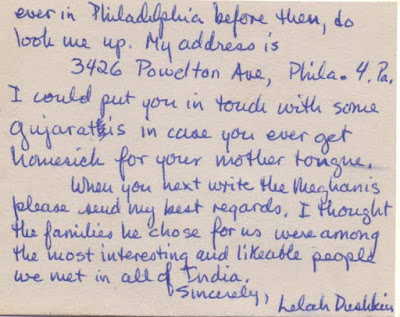 ever in Philadelphia before then, do
look me up. My address is
3426 Powelton Ave, Phila. 4. Pa.
I could put you in touch with some
Gujaratis in case you ever get
homesick for your mother tongue.
When you next write the Meghanis
please send my best regards. I thought
the families he chose for us were among
the most interesting and likeable people
we met in all of India.
Sincerely,
Lelah Dushkin